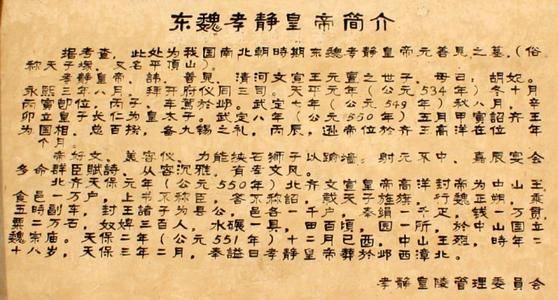 东魏孝静皇帝简介
据考查，此处为我国南北朝時期东魏孝静皇帝元善見之墓，（俗
称天子塚，又名平頂山）
孝静皇帝，諱，善見，清河文宣王元亶之世子，母曰：胡妃。
永熙三年八月，拜开府仪同三司。天平元年（公元534年）冬十月
丙寅即位，丙子，车駕於邺。武定七年（公元549年）秋八月，辛
卯立皇子长仁为皇太子。武定八年（公元550年）五月甲寅詔齐王
为国相，总百揆，备九锡之礼，丙辰，逊帝位於齐王高洋在位 年
个月。
帝好文，美容仪，力能挟石狮子以踰墙，射无不中，嘉辰宴会
多命群臣賦詩，从容沉雅，有孝文风。
北齐天保元年（公元550年）北齐文宣皇帝高洋封帝为中山王，
食邑一万户，上书不称臣，答不称詔，戴天子旌旗，行魏正朔，乘
五時副车，封王諸子为县公，邑各一千户，奉絹一千疋，钱一万贯，
粟二万石，奴婢三百人，水碾一具，田百頃，园一所，於中山国立
魏宗庙。天保二年（公元551年）十二月已酉，中山王殂，時年二
十八岁，天保三年二月，奉謚曰孝静皇帝葬於邺西漳北。
孝静皇陵管理委員会